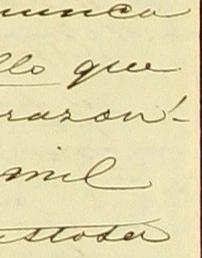 nunca
llo que
razon!-
mil
stosa